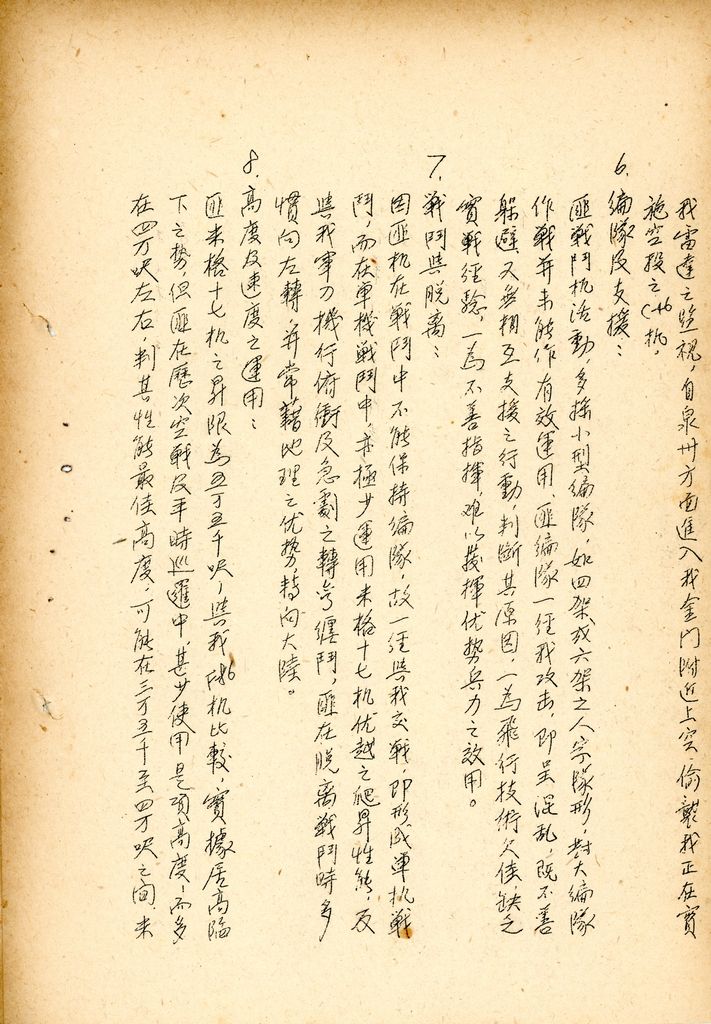 我雷達之監視，自泉州方面進入我金門附近上空，偷襲我正在實
施空投之C-46机，
6. 編隊及支援：
匪戰鬥机活動，多採小型編隊，如四架或六架之人字隊形，對大編隊
作戰并未能作有效運用，匪編隊一經我攻击，即呈混乱，既不善
躲避又無相互支援之行動，判斷其原因，一為飛行技術欠佳，缺乏
實戰经驗，一為不善指揮，难以發揮优势兵力之效用。
7. 戰鬥與脱离：
因匪机在戰鬥中不能保持編隊，故一经與我交戰，即形成单机戰
鬥，而在单機戰鬥中，亦極少運用米格十七机优越之爬昇性能，反
與我軍刀機行俯衝及急劇之轉弯纏鬥，匪在脱离戰鬥時多
慣向左轉，并常藉地理之优势，轉向大陸。
8. 高度及速度之運用：
匪米格十七机之昇限為五万五千呎，與我F-86机比較，實據居高臨
下之势，但匪在歷次空戰及平時巡邏中，甚少使用是項高度，而多
在四万呎左右，判其性能最佳高度，可能在三万五千至四万呎之间，米